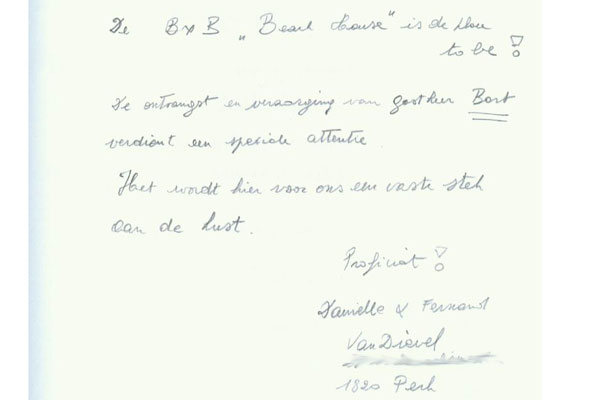 De B&B „Beach House" is de place
to be!
De ontvangst en verzorging van gastheer Bart
verdient een speciale attentie.
Het wordt hier voor ons een vaste stek
aan de kust.
Proficiat!
Danielle & Fernand
Van Dievel
1820 Perk